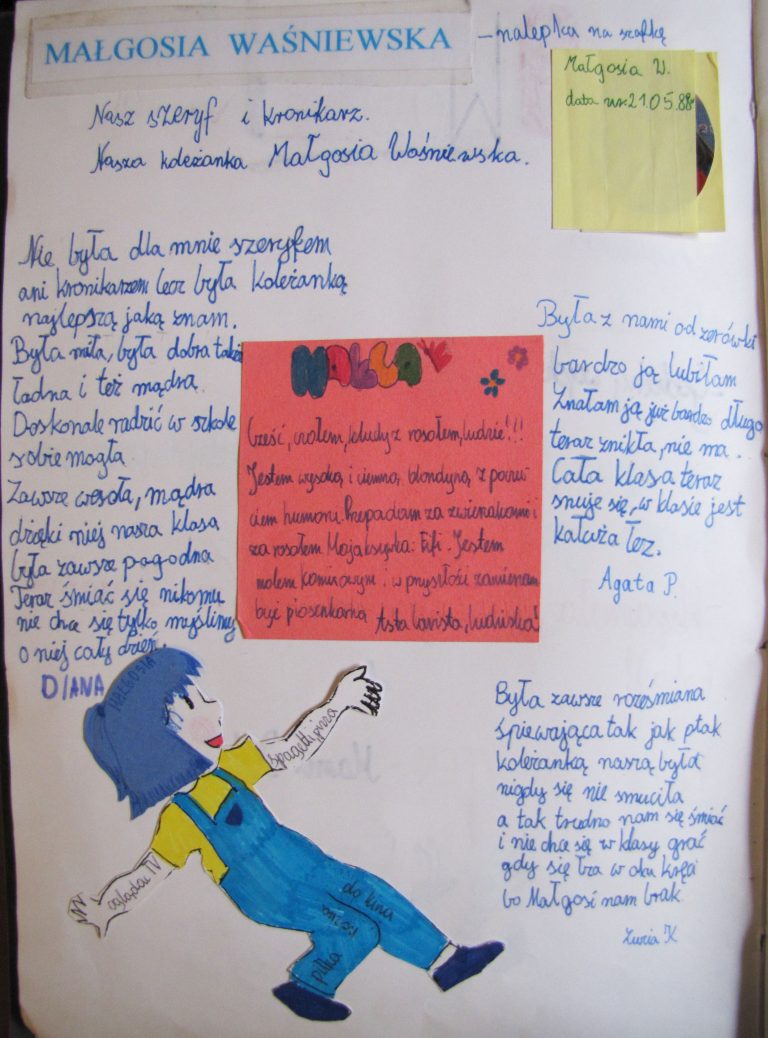 MAŁGOSIA WAŚNIEWSKA
– nalepka na szafkę
Małgosia W.
data ur. 21.05.88
Nasz szeryf i kronikarz.
Nasza koleżanka Małgosia Waśniewska.
Nie była dla mnie szeryfem
ani kronikarzem lecz była koleżanką
najlepszą jaką znam.
Była miła, była dobra także
ładna i też mądra
Doskonale radzić w szkole
sobie mogła
Zawsze wesoła, mądra
dzięki niej nasza klasa
była zawsze pogodna
Teraz śmiać się nikomu
nie chce się tylko myślimy
o niej cały dzień.
DIANA
MAŁGO
Cześć, czołem, kluchy z rosołem, ludzie!!!
Jestem wysoką i ciemną blondyną, z poczu-
ciem humoru. Przepadam za zwierzakami i
za rosołem. Moja ksywka: Fifi. Jestem
molem komixowym. w przyszłości zamierzam
być piosenkarką Asta lavista, ludziska!
Była z nami od zerówki
bardzo ją lubiłam
Znałam ją już bardzo długo
teraz znikła, nie ma.
Cała klasa teraz
snuje się, w klasie jest
kałuża łez.
Agata P.
Była zawsze roześmiana
śpiewająca tak jak ptak
koleżanką naszą była
nigdy się nie smuciła
a tak trudno nam się śmiać
i nie chce się w klasy grać
gdy się łza w oku kręci
bo Małgosi nam brak.
Zuzia K
MAŁGOSIA
spagetti, pizza
oglądać TV
do kina
piłka